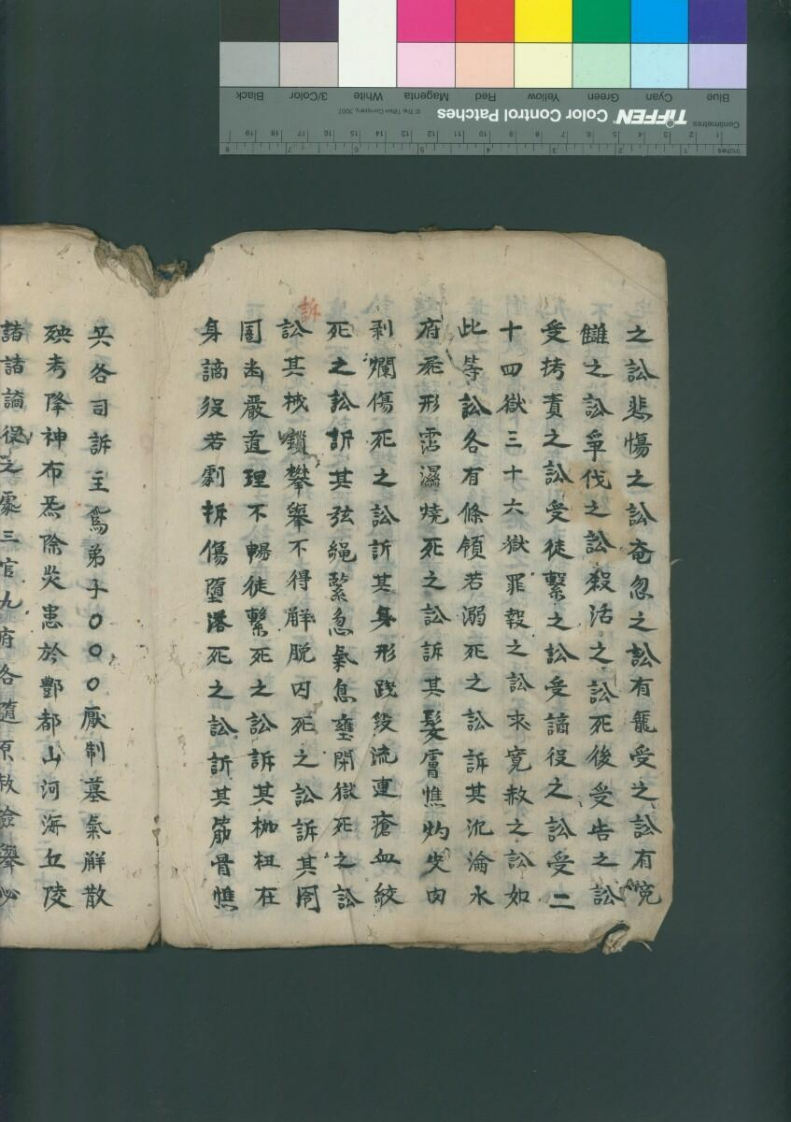 之訟悲傷之訟奄忽之訟有亀受之訟有寃
讎之訟爭伐之訟殺活之訟死後受告之訟
受拷責之訟受徒繫之訟受謫役之訟受二
十四獄三十六獄罪報之訟求寛赦之訟如
此等訟各有條領若溺死之訟訴其沉淪水
府死形霑濕燒死之訟訴其髮膚憔灼皮肉
剥爛傷死之訟訴其身形殘毀流連瘡血絞
死之訟訴其弦繩繫急氣息壅閉獄死之訟
訴
訟其桎鎖攀舉不得解脱囚死之訟訴其囹
圄幽嚴道理不暢徒繫死之訟訴其枷杻在
身謫役若劇拆傷墮落死之訟訴其筋骨憔
各司訴主為弟子〇〇〇厭制墓氣解散
殃考降神布炁除災患於酆都山河海丘陵
諸諸謫役之處三官九府各隨原赦
Blue
Cyan
Green
Yellow
Red
Magenta
White
3/Color
Black
Centimetres
TIFFEN Color Control Patches
© The Tiffen Company, 2007
Inches